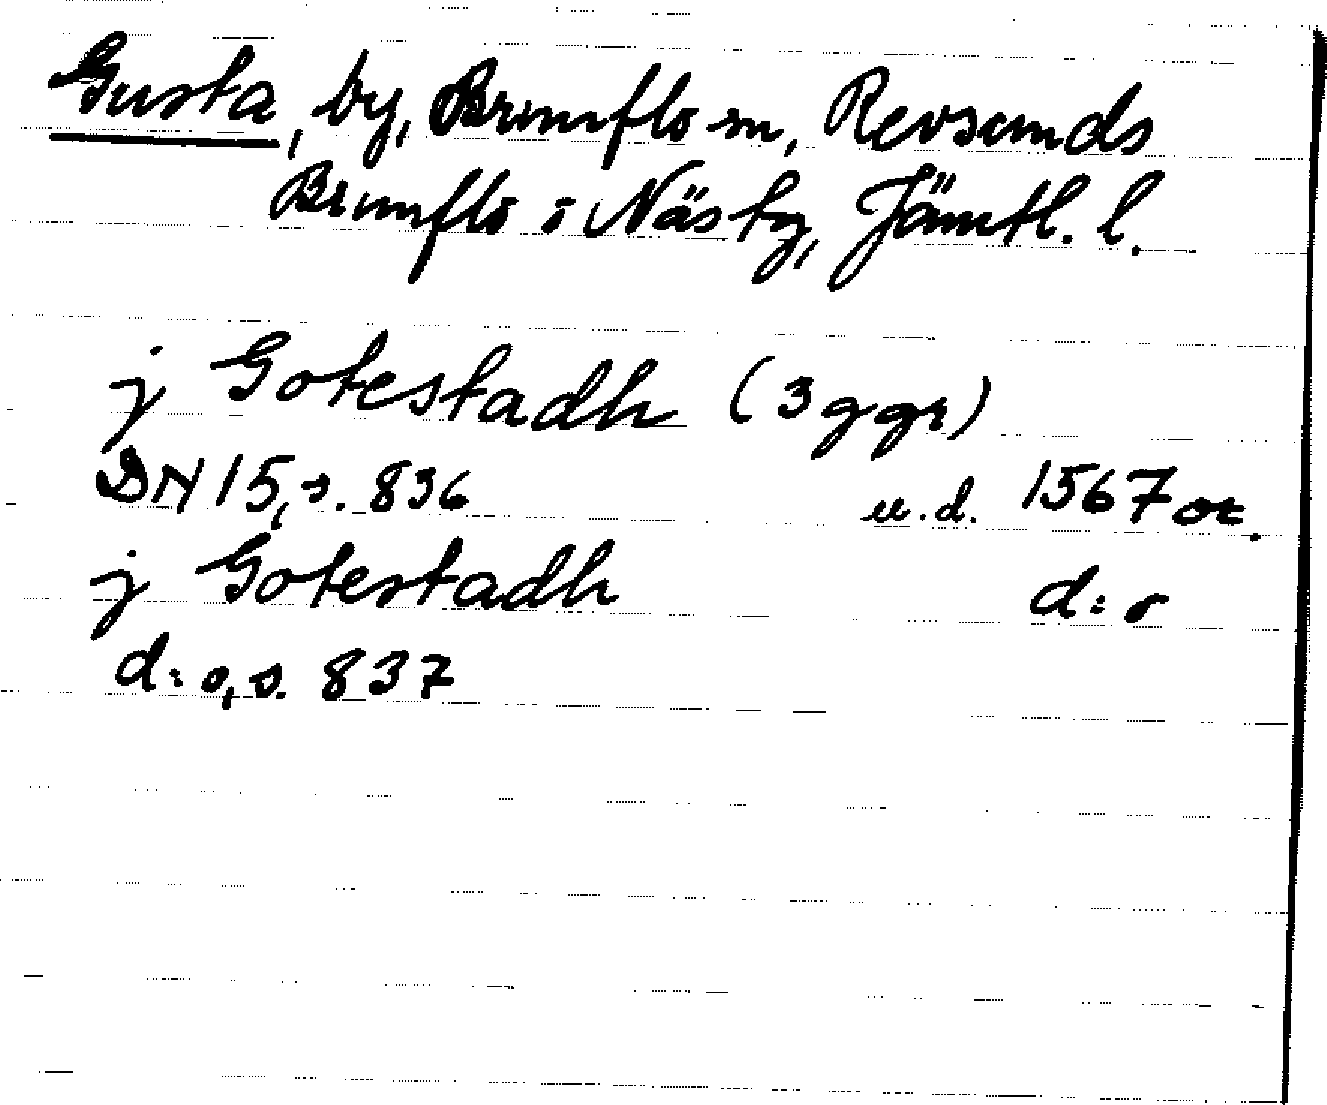 Gusta, by, Brunflo sn, Revsunds
Brunflo o Näs tg, Jämtl. l.
j Gotestadh (3 ggr)
DN 15, s. 836 u.d. 1567 or.
j Gotestadh d:o
d:o, s. 837